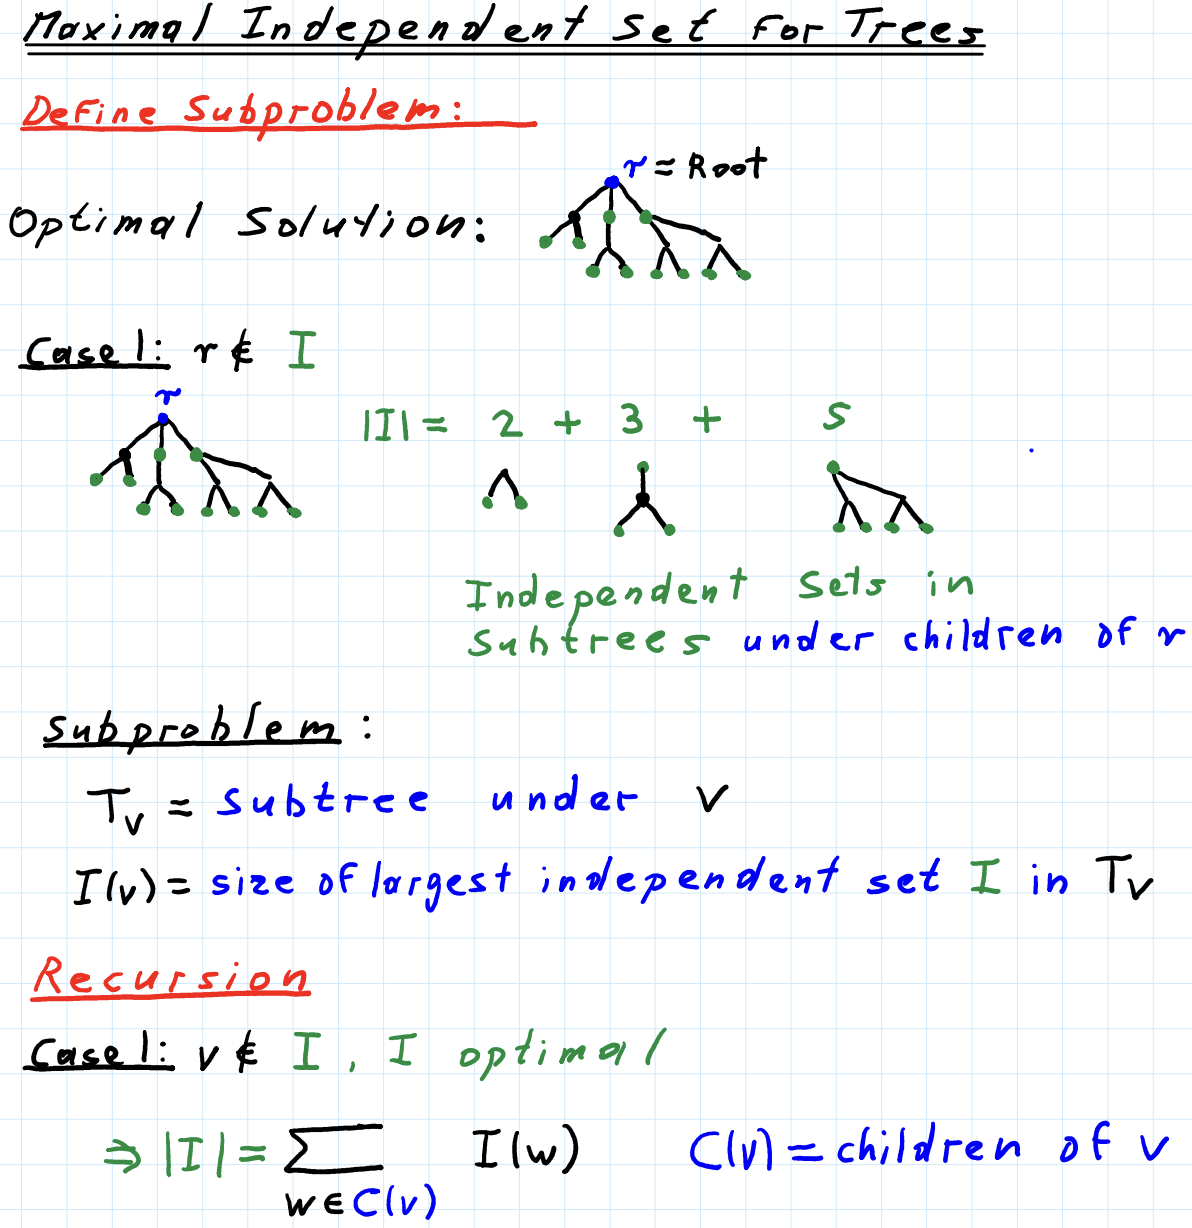 Maximal Independent Set for Trees
Define Subproblem:
r = Root
Optimal Solution:
Case 1: r ∉ I
r
|I| = 2 + 3 + 5
Independent Sets in
Subtrees under children of r
Subproblem:
T_v = subtree under v
I(v) = size of largest independent set I in T_v
Recursion
Case 1: v ∉ I, I optimal
⇒ |I| = ∑ I(w) C(v) = children of v
w ∈ C(v)